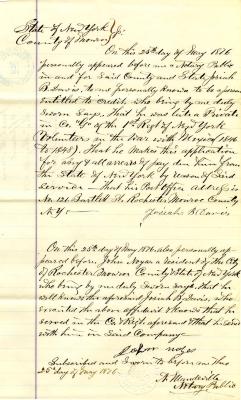 State of New York } SS.
County of Monroe
On this 25th day of May 1876
personally appeared before me a Notary Public
in and for Said County and State Josiah
B. Davis, to me personally known to be a person
entitled to Credit, who being by me duly
sworn Says, that he was late a Private
in Co. "G" of the 1st Regt of New York
Volunteers in the War with Mexico (1846
to 1848). That he makes this application
for any & all arrears of pay due him from
the State of New York by reason of Said
Service — that his Post Office address is
No. 121 Bartlett St. Rochester Monroe County
N.Y.
Josiah B. Davis
On this 25th day of May 1876. also personally ap
peared before, John Noyes a resident of the City
of Rochester Monroe County & State of New York
who being by me duly sworn says, that he
well knows the aforesaid Josiah B. Davis, who
executed the above affidavit & knows that he
served in the Co. & Regt aforesaid & that he served
with him in Said Company
John Noyes
Subscribed and Sworn to before me this
25th day of May 1876.
Notary Public